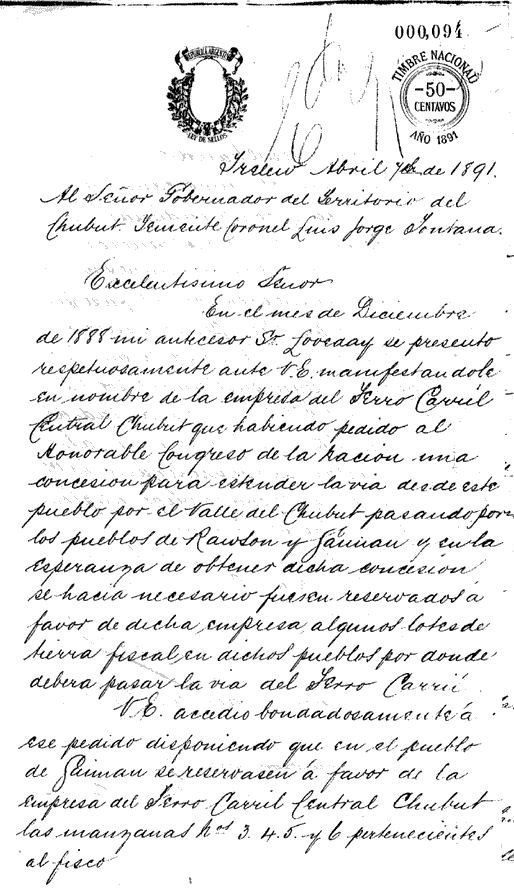 000,094
REPUBLICA ARGENTINA
LEY DE SELLOS
TIMBRE NACIONAL
-50-
CENTAVOS
AÑO 1891
Trelew Abril 7 de 1891.
Al Señor Gobernador del Territorio del
Chubut Teniente Coronel Luis Jorge Fontana.
Excelentisimo Señor
En el mes de Diciembre
de 1888 mi antecesor Sr Loveday se presento
respetuosamente ante V.E. manifestandole
en nombre de la empresa del Ferro Carril
Central Chubut que habiendo pedido al
Honorable Congreso de la nacion una
concesion para estender la via desde este
pueblo por el Valle del Chubut pasando por
los pueblos de Rawson y Gaiman y en la
esperanza de obtener dicha concesion
se hacia necesario fuesen reservados á
favor de dicha empresa, algunos lotes de
tierra fiscal, en dichos pueblos por donde
debera pasar la via del Ferro Carril
V.E. accedio bondadosamente á
ese pedido disponiendo que en el pueblo
de Gaiman se reservasen á favor de la
empresa del Ferro Carril Central Chubut
las manzanas Nos 3. 4. 5. y 6 pertenecientes
al fisco